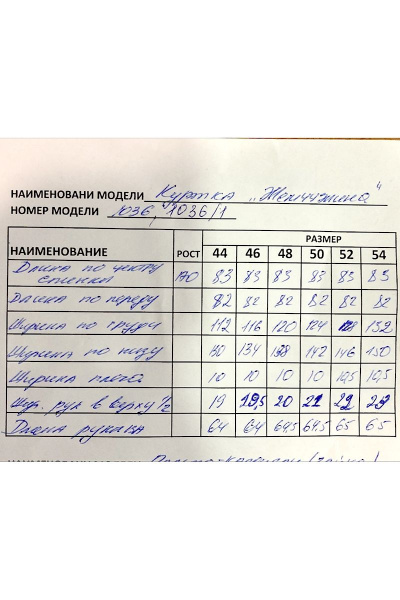 НАИМЕНОВАНИ МОДЕЛИ Куртка "Жемчужина"
НОМЕР МОДЕЛИ 1036, 1036/1
РАЗМЕР
НАИМЕНОВАНИЕ РОСТ 44 46 48 50 52 54
Длина по центу спинки 170 83 83 83 83 83 83
Длина по переду 82 82 82 82 82 82
Ширина по груди 112 116 120 124 128 132
Ширина по низу 130 134 138 142 146 150
Ширина плеча 10 10 10 10 10,5 10,5
Шир. рук в верху 1/2 19 19,5 20 21 22 23
Длина рукава 64 64 64,5 64,5 65 65